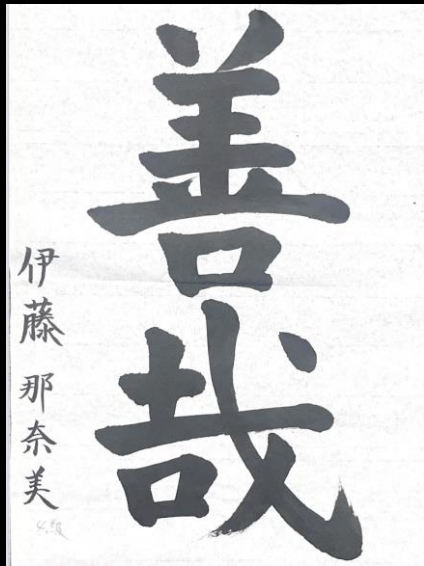 善哉
伊藤 那奈美